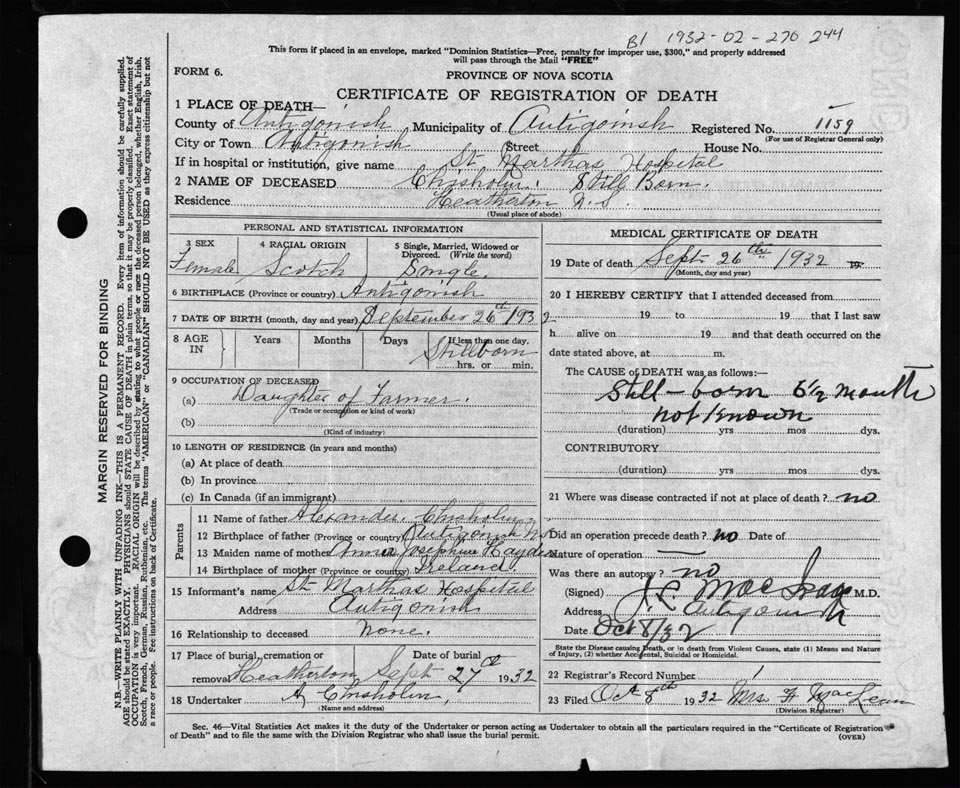 B1 1932-02-270 244
This form if placed in an envelope, marked "Dominion Statistics—Free, penalty for improper use, $300," and properly addressed
will pass through the Mail "FREE"
FORM 6.
PROVINCE OF NOVA SCOTIA
CERTIFICATE OF REGISTRATION OF DEATH
1 PLACE OF DEATH—
County of Antigonish Municipality of Antigoinsh Registered No. 1159
(For use of Registrar General only)
City or Town Antigonish (Street House No.
If in hospital or institution, give name St Marthas Hospital
2 NAME OF DECEASED Chisholm. Still Born.
Residence Heatherton N.S.
(Usual place of abode)
PERSONAL AND STATISTICAL INFORMATION
3 SEX 4 RACIAL ORIGIN 5 Single, Married, Widowed or
Divorced. (Write the word)
Female Scotch Single.
6 BIRTHPLACE (Province or country) Antigonish
7 DATE OF BIRTH (month, day and year) September 26th 1932
8 AGE IN Years Months Days If less than one day,
Stillborn
hrs. or min.
9 OCCUPATION OF DECEASED
(a) Daughter of Farmer.
(Trade or occupation or kind of work)
(b)
(Kind of industry)
10 LENGTH OF RESIDENCE (in years and months)
(a) At place of death
(b) In province
(c) In Canada (if an immigrant)
Parents
11 Name of father Alexander Chisholm
12 Birthplace of father (Province or country) Antigonish N.S.
13 Maiden name of mother Anna Josephine Hayden
14 Birthplace of mother (Province or country) Ireland.
15 Informant's name St Marthas Hospital
Address Antigonish
16 Relationship to deceased None.
17 Place of burial, cremation or Date of burial
removal Heatherton Sept 27th 1932
18 Undertaker A Chisholm
(Name and address)
MEDICAL CERTIFICATE OF DEATH
19 Date of death Sept 26th 1932 19
(Month, day and year)
20 I HEREBY CERTIFY that I attended deceased from
19 to 19 that I last saw
h alive on 19 and that death occurred on the
date stated above, at m.
The CAUSE of DEATH was as follows:—
Still-born 6½ months
not known
(duration) yrs mos dys.
CONTRIBUTORY
(duration) yrs mos dys.
21 Where was disease contracted if not at place of death? no
Did an operation precede death? no Date of
Nature of operation —
Was there an autopsy? no
(Signed) J. L. MacIsaac M.D.
Address Antigonish
Date Oct 8/32
State the Disease causing Death, or in death from Violent Causes, state (1) Means and Nature
of Injury, (2) whether Accidental, Suicidal or Homicidal.
22 Registrar's Record Number 1
23 Filed Oct 8th 1932 Mrs. F MacLean
(Division Registrar)
Sec. 46—Vital Statistics Act makes it the duty of the Undertaker or person acting as Undertaker to obtain all the particulars required in the "Certificate of Registration
of Death" and to file the same with the Division Registrar who shall issue the burial permit.
(OVER)
MARGIN RESERVED FOR BINDING
N.B.—WRITE PLAINLY WITH UNFADING INK—THIS IS A PERMANENT RECORD. Every item of information should be carefully supplied.
AGE should be stated EXACTLY. PHYSICIANS should STATE CAUSE OF DEATH in plain terms, so that it may be properly classified. Exact statement of
OCCUPATION is very important. RACIAL ORIGIN will be described by stating to what people or race the deceased person belonged, whether English, Irish,
Scotch, French, German, Russian, Ruthenian, etc. The terms "AMERICAN" or "CANADIAN" SHOULD NOT BE USED as they express citizenship but not
a race or people. See instructions on back of Certificate.